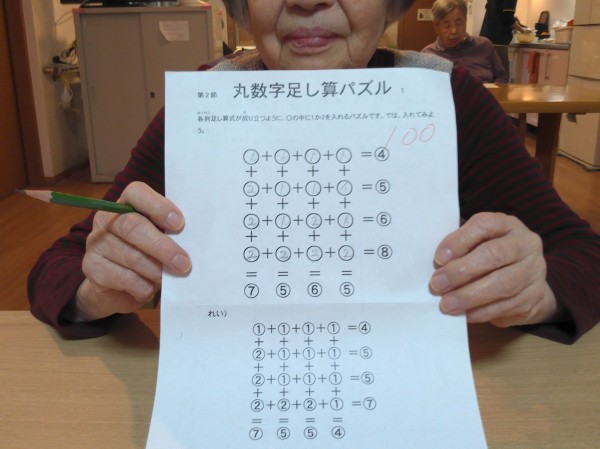 第2部 丸数字足し算パズル 1
各列足し算式が成り立つように、〇の中に1か2を入れるパズルです。では、入れてみよ
う。
100
①+①+①+①=④
+ + + +
②+①+①+①=⑤
+ + + +
②+①+②+①=⑥
+ + + +
②+②+②+②=⑧
= = = =
⑦ ⑤ ⑥ ⑤
れい)
①+①+①+①=④
+ + + +
②+①+①+①=⑤
+ + + +
②+①+①+①=⑤
+ + + +
②+②+②+①=⑦
= = = =
⑦ ⑤ ⑤ ④